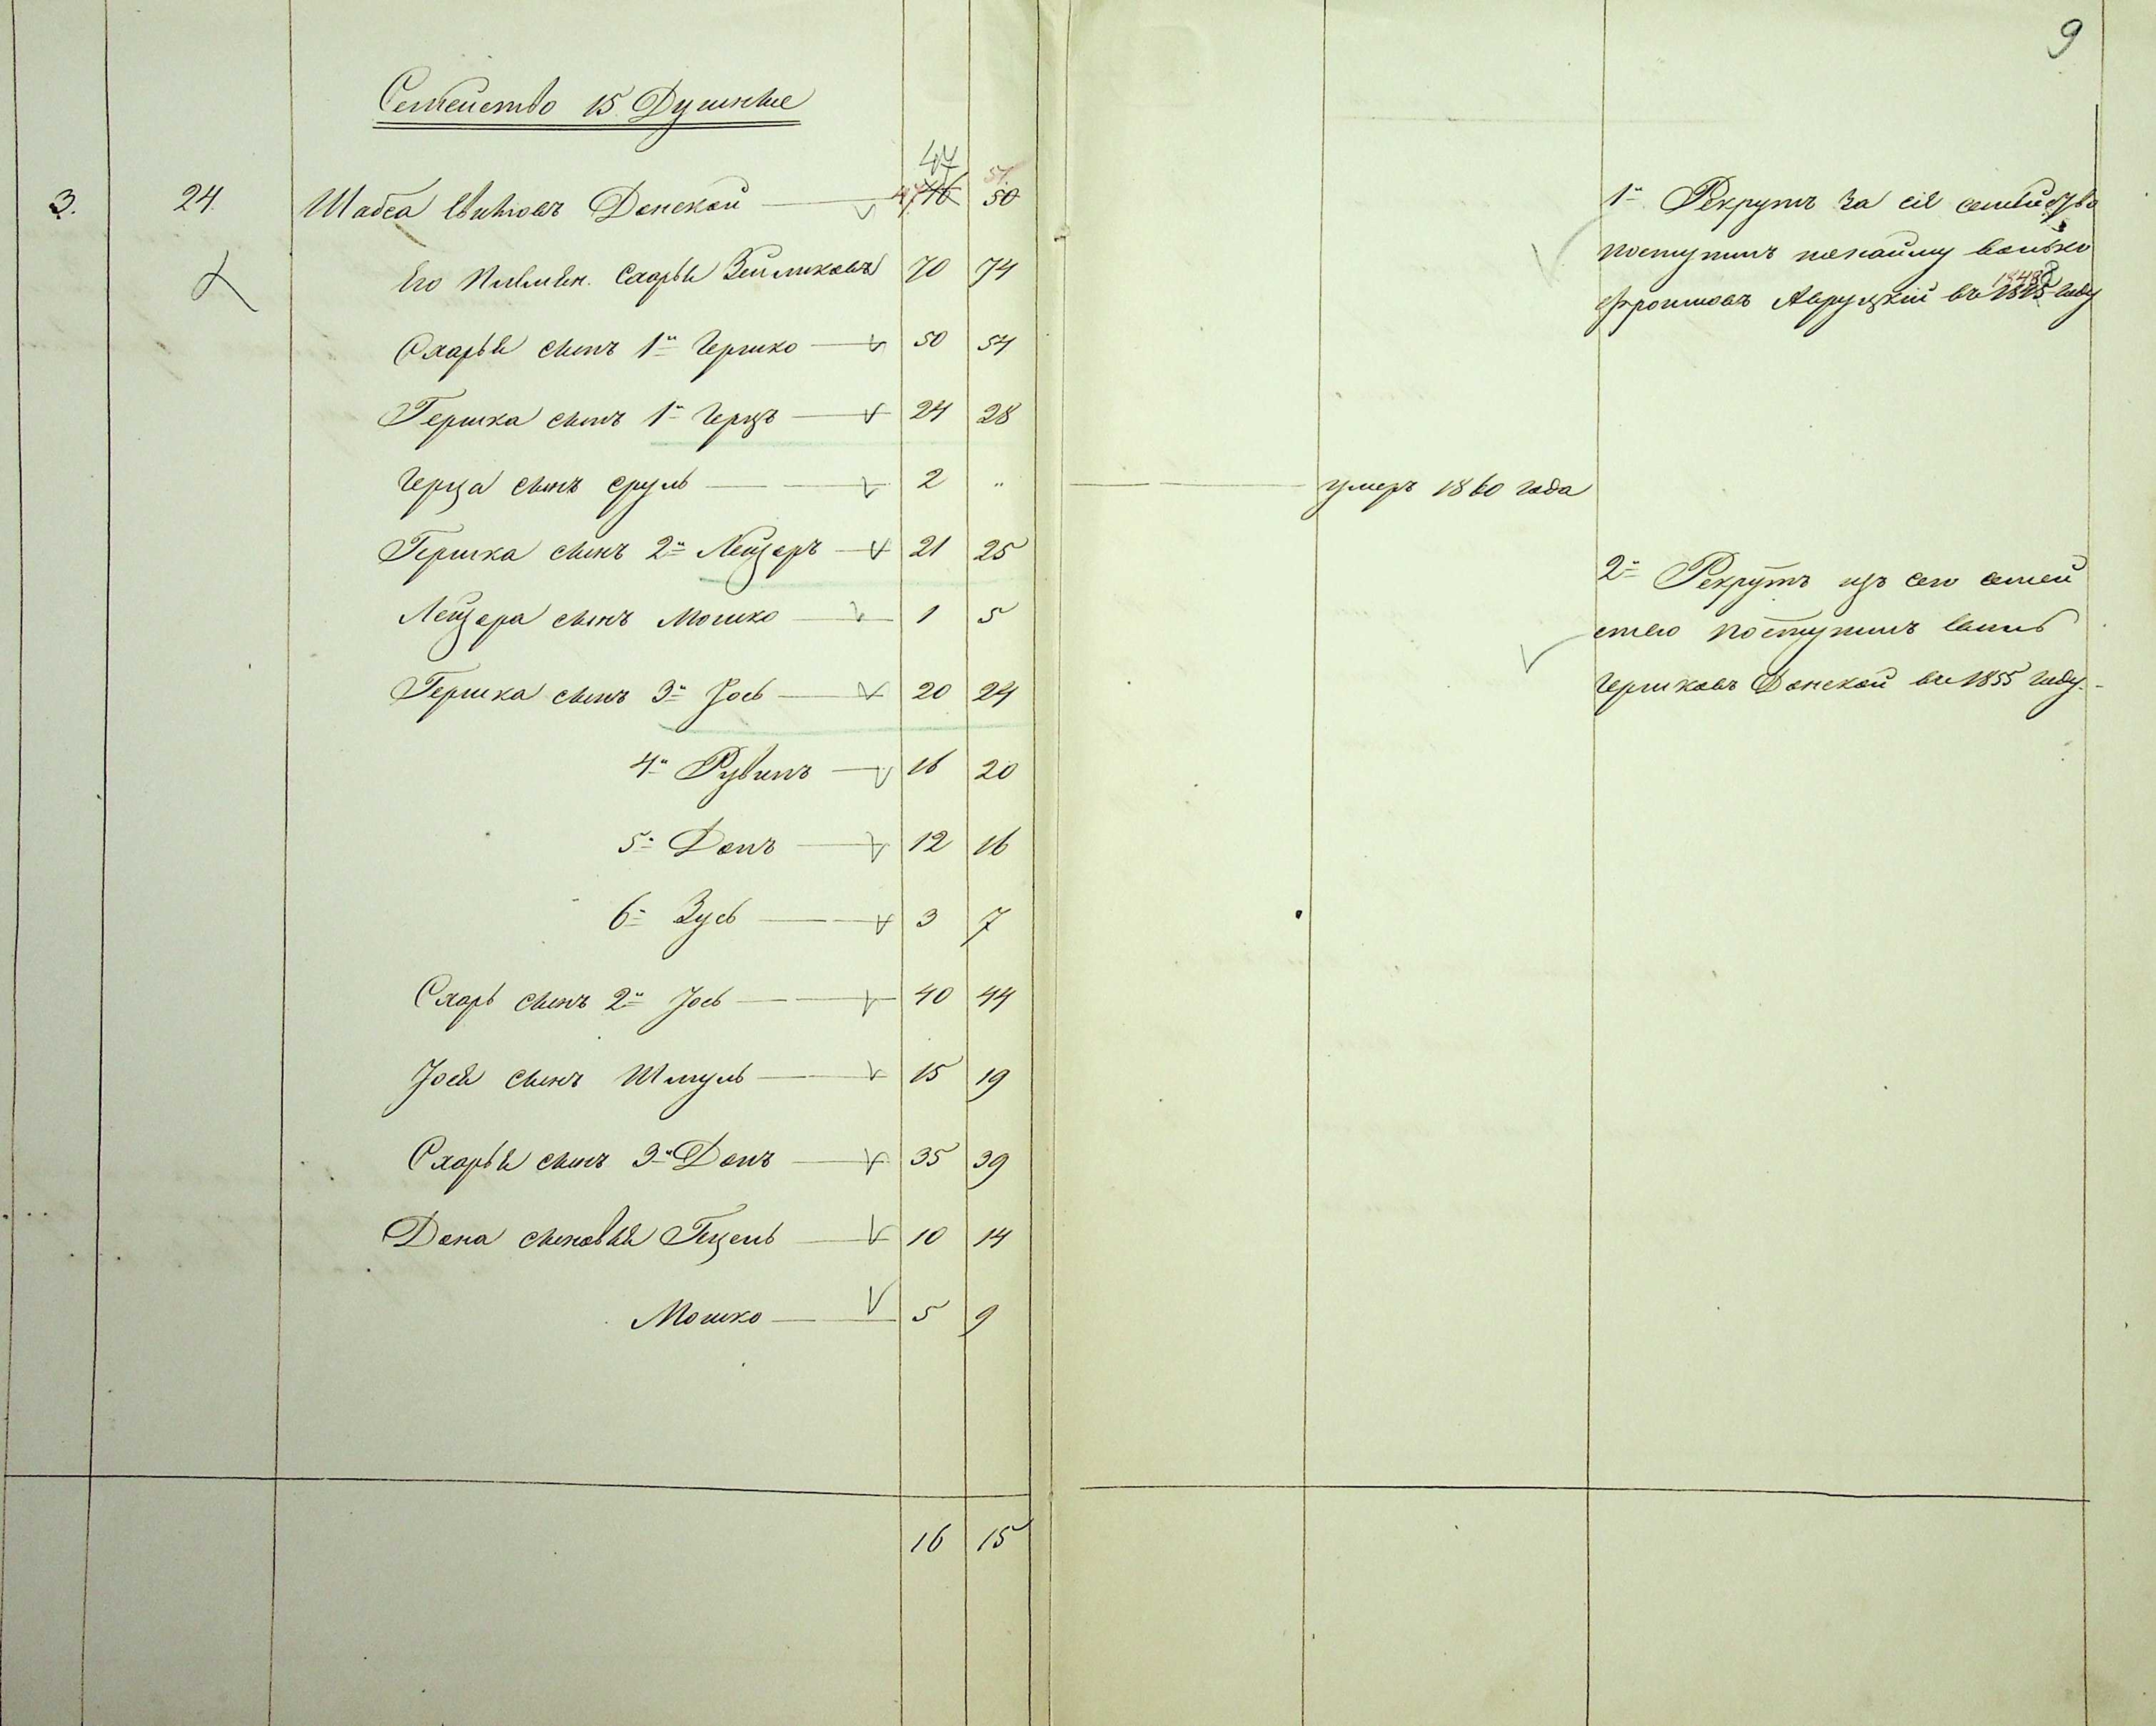 9
Семейство 15 Душные
3. 24. Шабса Ицковъ Донской 47 46 51 50
Его племян. Схарье Зейликовъ 70 74
Схарье сынъ 1й Гершко 50 54
Гершка сынъ 1й Герцъ 24 28
Герца сынъ Сруль 2 " умеръ 1860 года
Гершка сынъ 2й Лейзеръ 21 25
Лейзера сынъ Мошко 1 5
Гершка сынъ 3й Іось 20 24
4й Рувинъ 16 20
5й Донъ 12 16
6й Зусь 3 7
Схарь сынъ 2й Іось 40 44
Іося сынъ Шмуль 15 19
Схарья сынъ 3й Донъ 35 39
Дона сыновья Гецель 10 14
Мошко 5 9
16 15
1й Рекрутъ за сіе семейство
поступилъ по найму Волько
Фроимовъ Авруцкій въ 1848 году
2й Рекрутъ изъ сего семей
ство поступилъ
Гершковъ Донской въ 1855 году